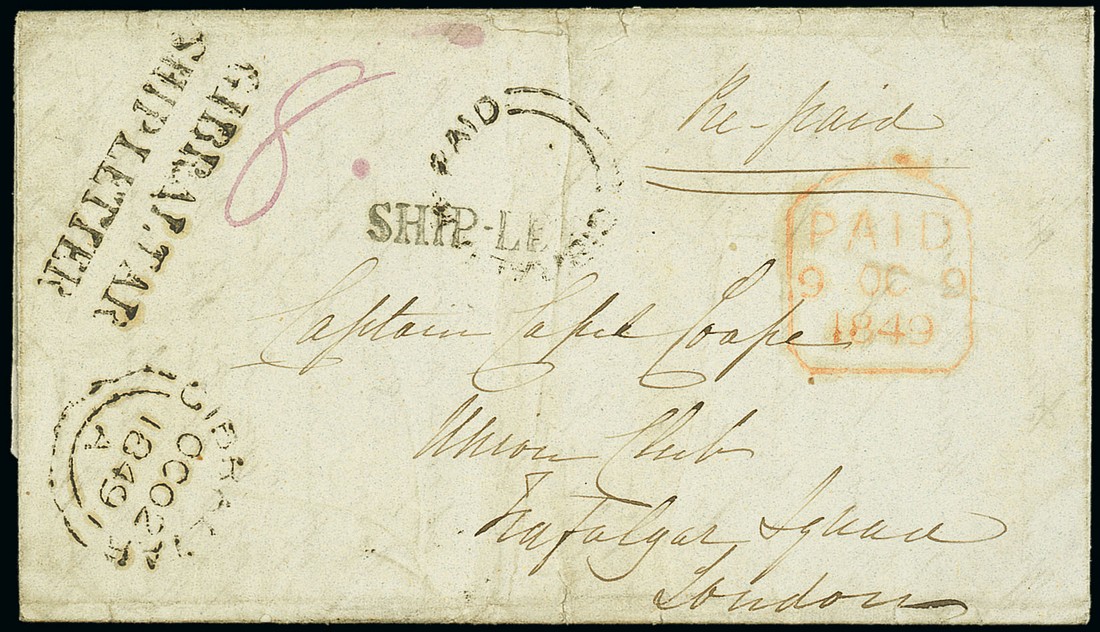 GIBRALTAR
SHIP LETTER
8
PAID
SHIP-LE
Pre-paid
PAID
9 OC 9
1849
Captain Capel Coape
Union Club
Trafalgar Square
London
GIBRALT
OC02
1849
A